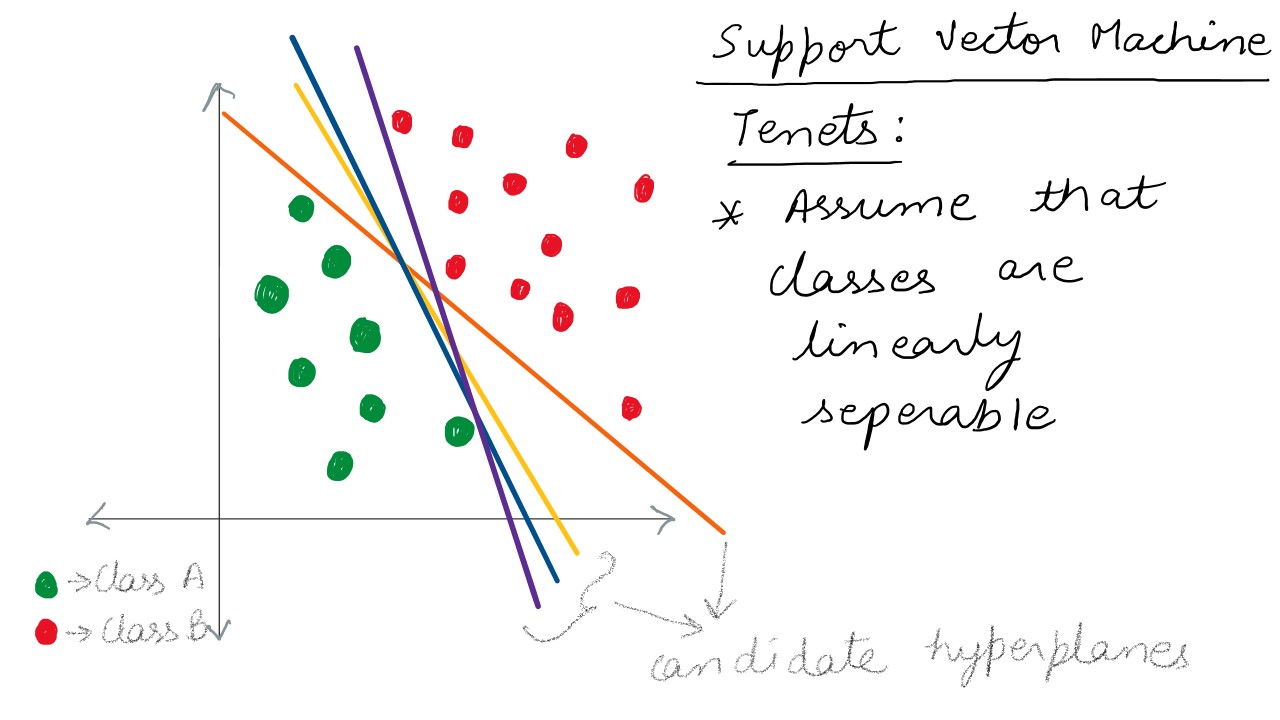 Support Vector Machine
Tenets:
* Assume that
classes are
linearly
seperable
→ Class A
→ Class B
candidate hyperplanes